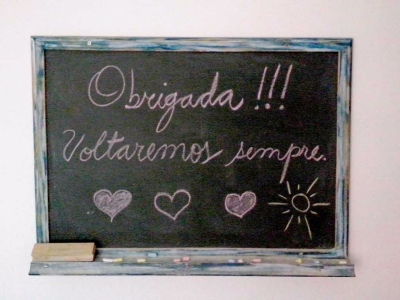 Obrigada !!!
Voltaremos sempre.